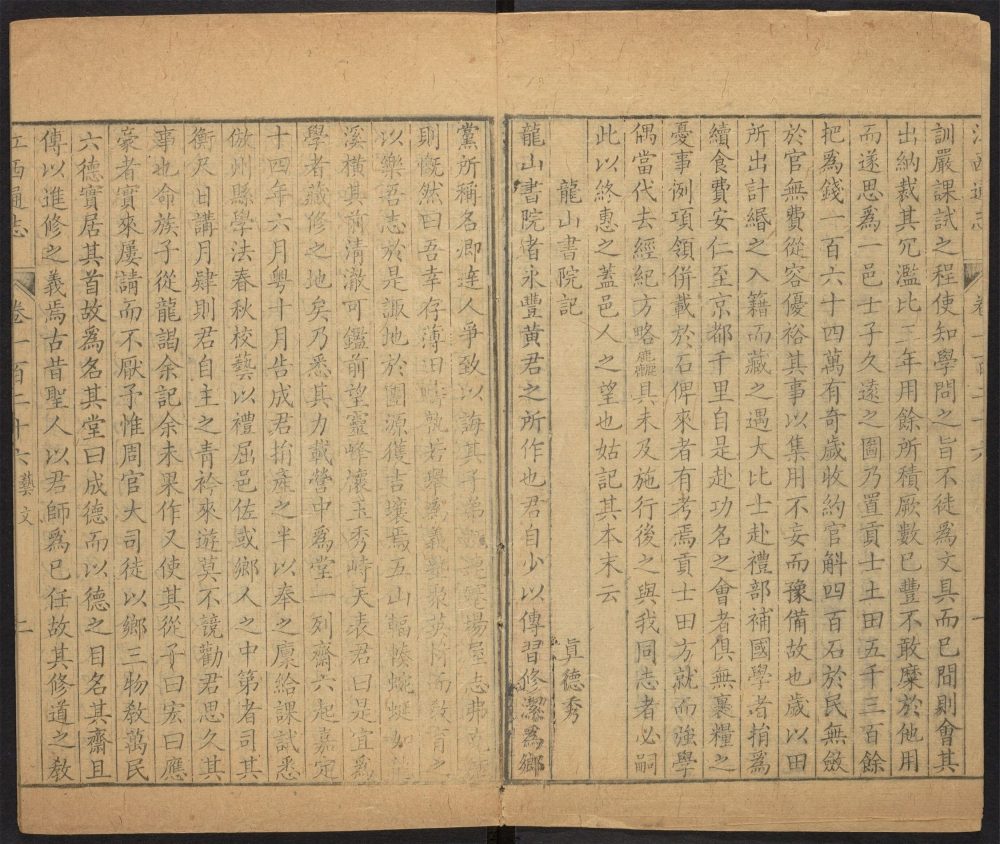 江西通志 卷一百二十六 一
訓嚴課試之程使知學問之旨不徒爲文具而已問則會其
出納裁其冗濫比三年用餘所積厥數已豐不敢糜於他用
而遂思爲一邑士子久遠之圖乃置貢士土田五千三百餘
把爲錢一百六十四萬有奇歲收約官斛四百石於民無斂
於官無費從容優裕其事以集用不妄而豫備故也歲以田
所出計緡之入籍而藏之遇大比士赴禮部補國學者捐爲
續食費安仁至京都千里自是赴功名之會者俱無裹糧之
憂事例項領併載於石俾來者有考焉貢士田方就而強學
偶當代去經紀方略麤具未及施行後之與我同志者必嗣
此以終惠之蓋邑人之望也姑記其本末云
龍山書院記 眞德秀
龍山書院者永豐黃君之所作也君自少以傳習修潔爲鄉
黨所稱名卿達人爭致以誨其子弟 場屋志弗克
則慨然曰吾幸存薄田 孰若舉 義 聚英 而敎育之
以樂吾志於是諏地於團源獲吉壤焉五山輻 蜿蜒如龍
溪橫其前清澈可鑑前望靈峰瀼玉秀峙天表君曰是宜爲
學者藏修之地矣乃悉其力載營中爲堂一列齋六起嘉定
十四年六月粵十月告成君捐產之半以奉之廩給課試悉
倣州縣學法春秋校藝以禮屈邑佐或鄉人之中第者司其
衡尺日講月肄則君自主之青衿來遊莫不競勸君思久其
事也命族子從龍謁余記余未果作又使其從子曰宏曰應
豪者實來屢請而不厭予惟周官大司徒以鄉三物敎萬民
六德實居其首故爲名其堂曰成德而以德之目名其齋且
傳以進修之義焉古昔聖人以君師爲已任故其修道之敎
江西通志 卷一百二十六 藝文 二